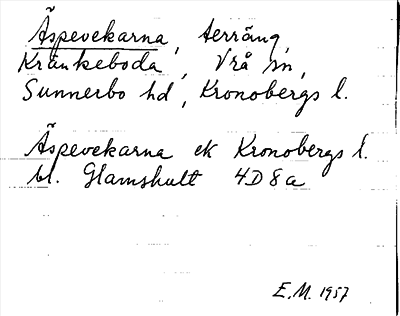 Äspevekarna, terräng,
Kränkeboda, Vrå sn,
Sunnerbo hd, Kronobergs l.
Äspevekarna ek Kronobergs l.
bl. Glamshult 4D8a
E.M. 1957